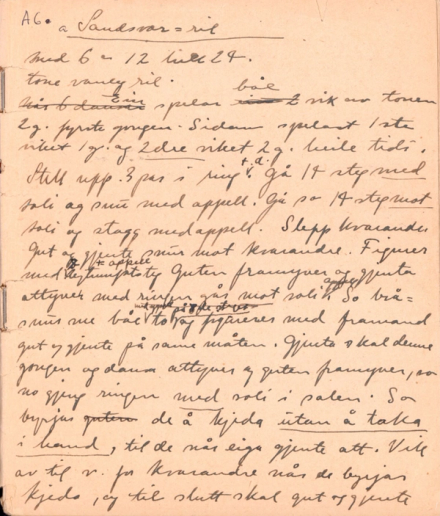 A6. a Sandsvær = ril
med 6 - 12 til 24.
tone vanleg ril.
spelar båe 2 vik av tonen
2 g. fyrste gongen. Sidan spelast 1ste
viket 1 g. og 2dre viket 2 g. heile tidi.
Still upp 3 par i ring t. d. Gå 14 steg med
soli og snu med appell. Gå so 14 steg mot
soli og stogg med appell. Slepp kvarandre
Gut og gjente snur mot kvarandre. Figurer
med Guten framyver og gjenta
attyver med ringen gås mot soli. So
snur me båe to og figurerer med framand
gut og gjente på same måten. Gjenta skal denne
gongen og dansa attyver og guten framyver, so
no gjeng ringen med soli i salen. So
byrjar de å kjeda utan å taka
i hand, til de når eiga gjente att. Vik
av til v. for kvarandre når de byrjar
kjeda, og til slutt skal gut og gjente